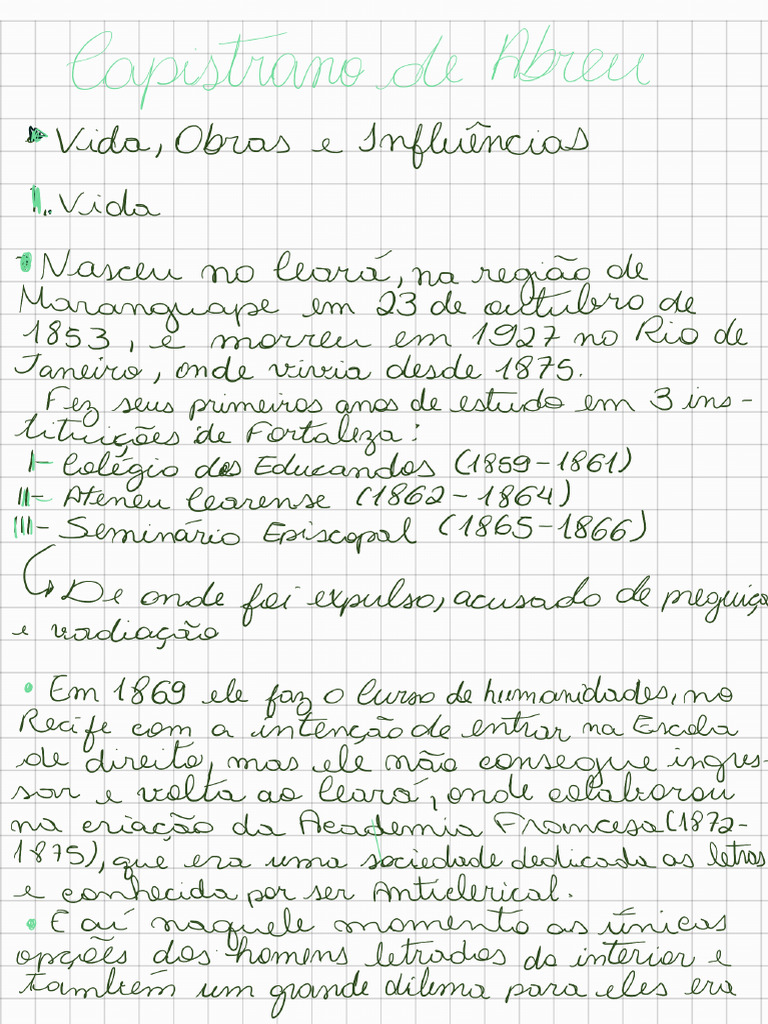 Capistrano de Abreu
Vida, Obras e Influências
1. Vida
Nasceu no Ceará, na região de
Maranguape em 23 de outubro de
1853, e morreu em 1927 no Rio de
Janeiro, onde vivia desde 1875.
Fez seus primeiros anos de estudo em 3 ins-
tituições de Fortaleza:
I- Colégio dos Educandos (1859-1861)
II- Ateneu Cearense (1862-1864)
III- Seminário Episcopal (1865-1866)
De onde foi expulso, acusado de preguiça
e vadiação
• Em 1869 ele faz o curso de humanidades, no
Recife com a intenção de entrar na Escola
de direito, mas ele não consegue ingres-
sar e volta ao Ceará, onde colaborou
na criação da Academia Francesa (1872-
1875), que era uma sociedade dedicada as letras
e conhecida por ser Anticlerical.
• E aí naquele momento as únicas
opções dos homens letrados do interior e
também um grande dilema para eles era